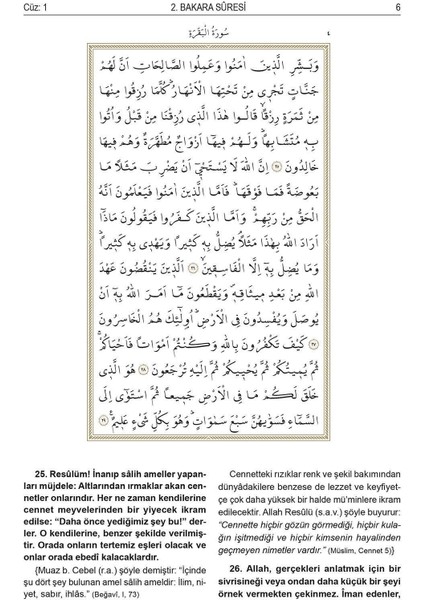 Cüz: 1 2. BAKARA SÛRESİ 6
سُورَةُ الْبَقَرَةِ ٤
وَبَشِّرِ الَّذ۪ينَ اٰمَنُوا وَعَمِلُوا الصَّالِحَاتِ اَنَّ لَهُمْ
جَنَّاتٍ تَجْر۪ي مِنْ تَحْتِهَا الْاَنْهَارُۜ كُلَّمَا رُزِقُوا مِنْهَا
مِنْ ثَمَرَةٍ رِزْقًاۙ قَالُوا هٰذَا الَّذ۪ي رُزِقْنَا مِنْ قَبْلُ وَاُتُوا
بِه۪ مُتَشَابِهًاۜ وَلَهُمْ ف۪يهَٓا اَزْوَاجٌ مُطَهَّرَةٌ وَهُمْ ف۪يهَا
خَالِدُونَ ﴿٢٥﴾ اِنَّ اللّٰهَ لَا يَسْتَحْي۪ٓ اَنْ يَضْرِبَ مَثَلًا مَا
بَعُوضَةً فَمَا فَوْقَهَاۜ فَاَمَّا الَّذ۪ينَ اٰمَنُوا فَيَعْلَمُونَ اَنَّهُ
الْحَقُّ مِنْ رَبِّهِمْۚ وَاَمَّا الَّذ۪ينَ كَفَرُوا فَيَقُولُونَ مَاذَٓا
اَرَادَ اللّٰهُ بِهٰذَا مَثَلًاۢ يُضِلُّ بِه۪ كَث۪يرًا وَيَهْد۪ي بِه۪ كَث۪يرًاۜ
وَمَا يُضِلُّ بِه۪ٓ اِلَّا الْفَاسِق۪ينَۙ ﴿٢٦﴾ اَلَّذ۪ينَ يَنْقُضُونَ عَهْدَ
اللّٰهِ مِنْ بَعْدِ م۪يثَاقِه۪ۖ وَيَقْطَعُونَ مَٓا اَمَرَ اللّٰهُ بِه۪ٓ اَنْ
يُوصَلَ وَيُفْسِدُونَ فِي الْاَرْضِۜ اُو۬لٰٓئِكَ هُمُ الْخَاسِرُونَ
﴿٢٧﴾ كَيْفَ تَكْفُرُونَ بِاللّٰهِ وَكُنْتُمْ اَمْوَاتًا فَاَحْيَاكُمْۚ
ثُمَّ يُم۪يتُكُمْ ثُمَّ يُحْي۪يكُمْ ثُمَّ اِلَيْهِ تُرْجَعُونَ ﴿٢٨﴾ هُوَ الَّذ۪ي
خَلَقَ لَكُمْ مَا فِي الْاَرْضِ جَم۪يعًا ثُمَّ اسْتَوٰٓى اِلَى
السَّمَٓاءِ فَسَوّٰيهُنَّ سَبْعَ سَمٰوَاتٍۜ وَهُوَ بِكُلِّ شَيْءٍ عَل۪يمٌ۟ ﴿٢٩﴾
25. Resûlüm! İnanıp sâlih ameller yapan-
ları müjdele: Altlarından ırmaklar akan cen-
netler onlarındır. Her ne zaman kendilerine
cennet meyvelerinden bir yiyecek ikram
edilse: “Daha önce yediğimiz şey bu!” der-
ler. O kendilerine, benzer şekilde verilmiş-
tir. Orada onların tertemiz eşleri olacak ve
onlar orada ebedî kalacaklardır.
{Muaz b. Cebel (r.a.) şöyle demiştir: “İçinde
şu dört şey bulunan amel sâlih ameldir: İlim, ni-
yet, sabır, ihlâs.” (Beğavî, I, 73)
Cennetteki rızıklar renk ve şekil bakımından
dünyâdakilere benzese de lezzet ve keyfiyet-
çe çok daha yüksek bir halde mü’minlere ikram
edilecektir. Allah Resûlü (s.a.v.) şöyle buyurur:
“Cennette hiçbir gözün görmediği, hiçbir kula-
ğın işitmediği ve hiçbir kimsenin hayalinden
geçmeyen nimetler vardır.” (Müslim, Cennet 5)}
26. Allah, gerçekleri anlatmak için bir
sivrisineği veya ondan daha küçük bir şeyi
örnek vermekten çekinmez. İman edenler,